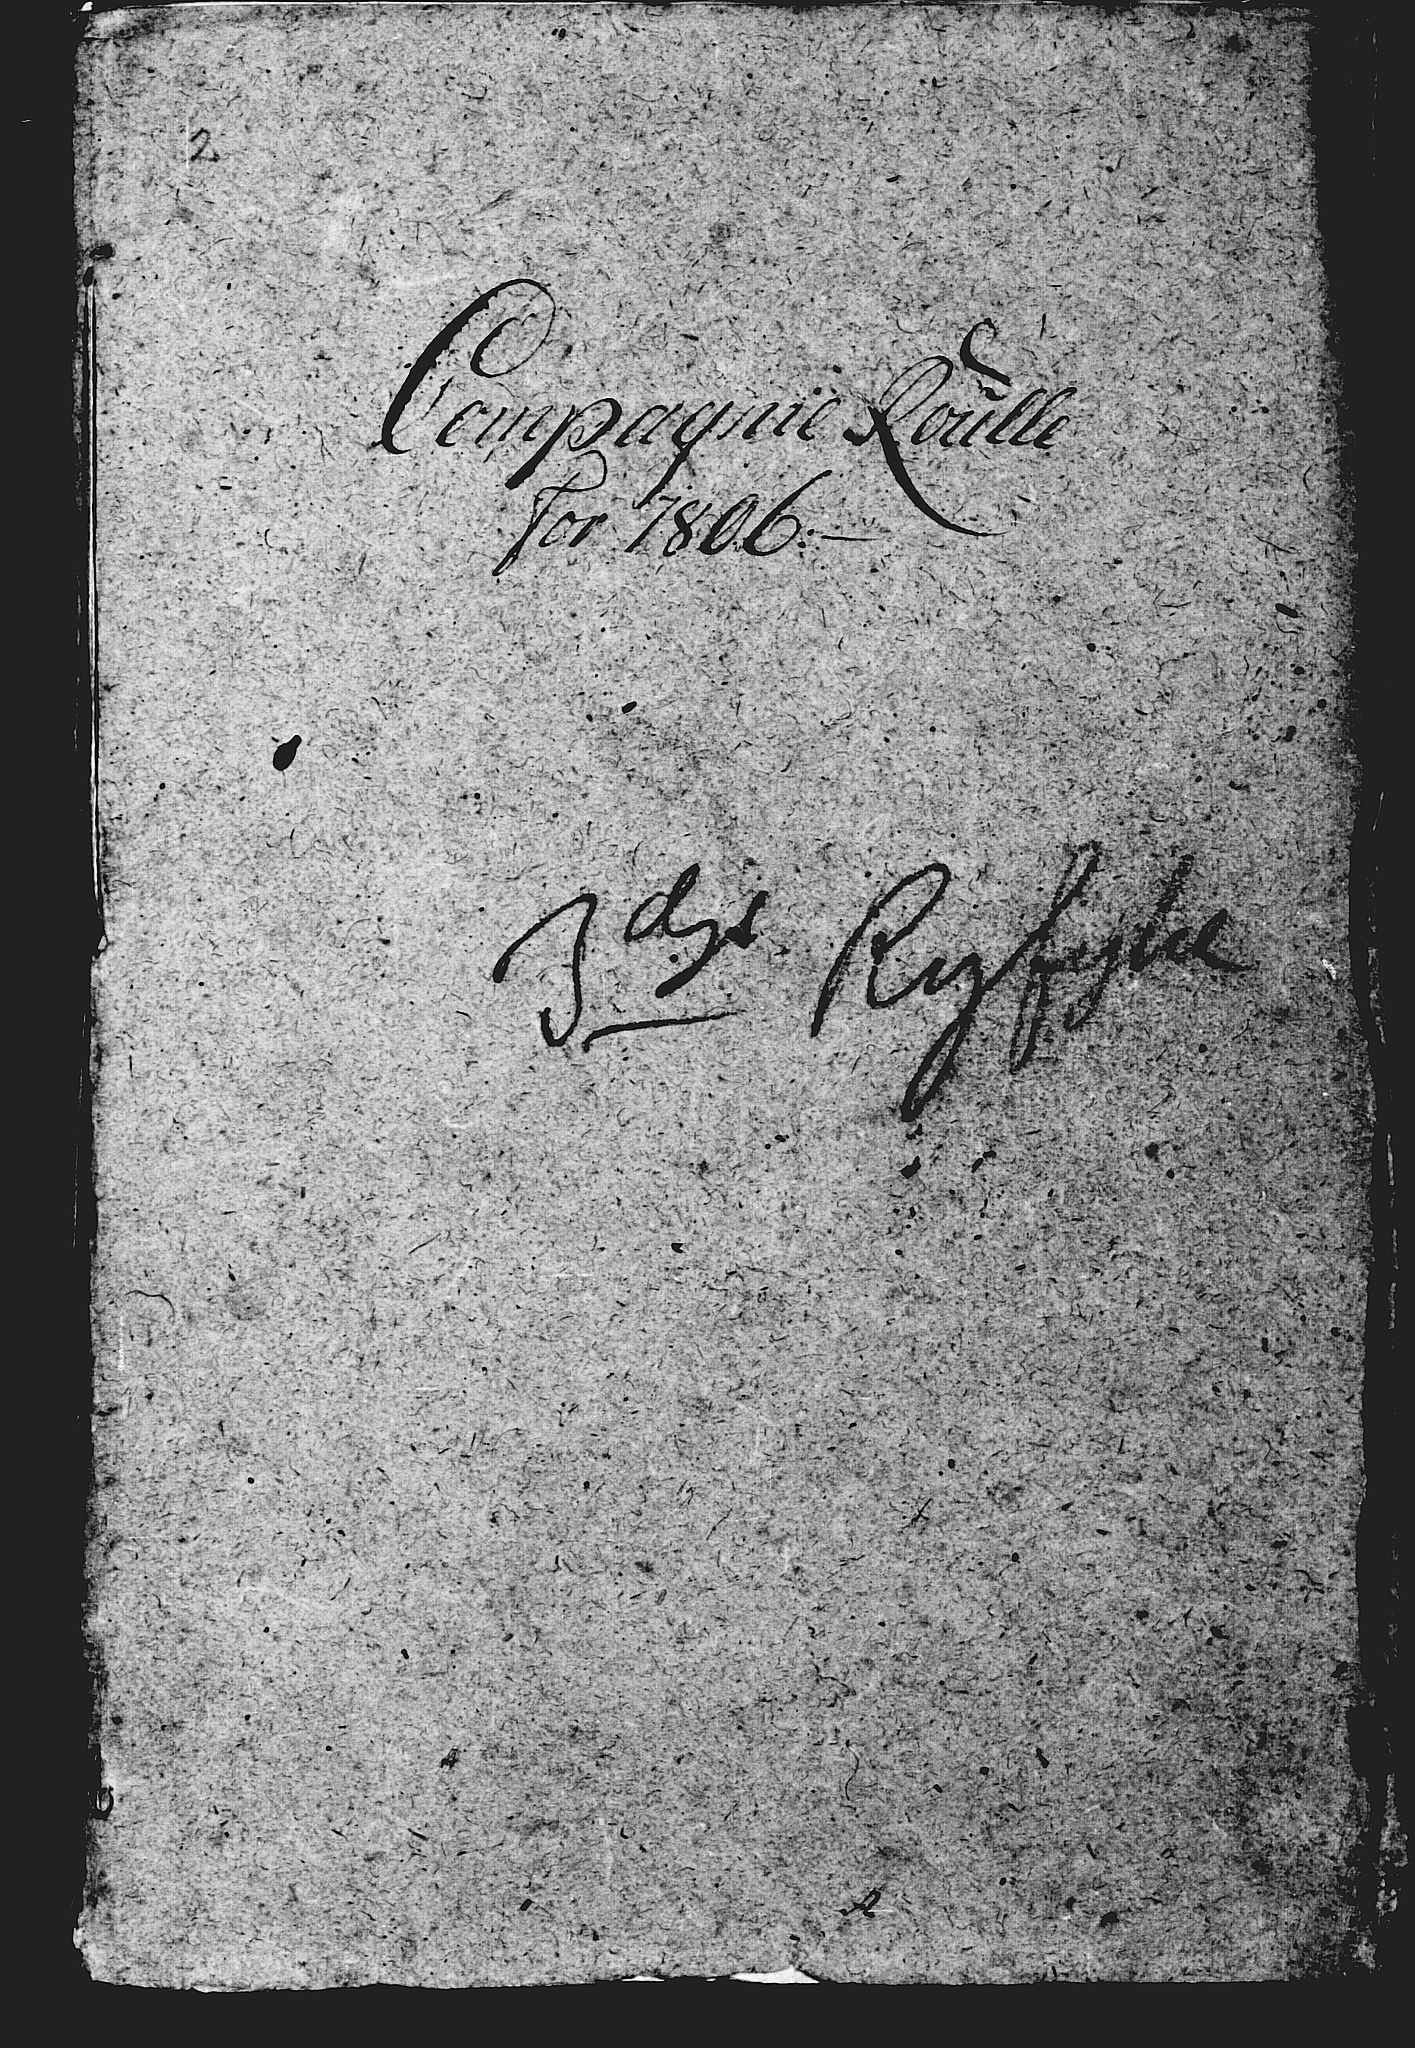 2
Compagnie Roulle
For 1806:—
3 dys Ryfylke